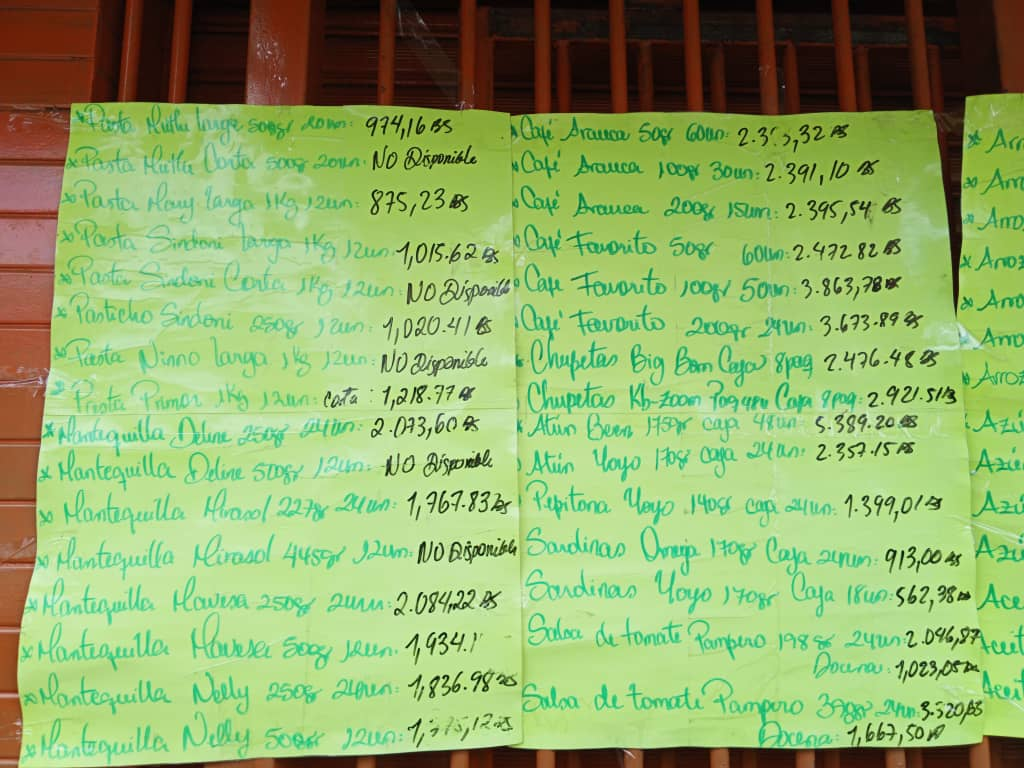 * Pasta Mutlu larga 500gr 20un: 974,16 BS
* Pasta Mutlu Corta 500gr 20un: NO Disponible
* Pasta Mary larga 1Kg 12un: 875,23 BS
* Pasta Sindoni larga 1Kg 12un: 1,015.62 BS
* Pasta Sindoni Corta 1Kg 12un: NO Disponible
* Pasticho Sindoni 250gr 12un: 1,020.41 BS
* Pasta Ninno larga 1Kg 12un: NO Disponible
* Pasta Primor 1Kg 12un: corta: 1,218.77 BS
* Mantequilla Deline 250gr 24un: 2.073,60 BS
* Mantequilla Deline 500gr 12un: NO Disponible
* Mantequilla Mirasol 227gr 24un: 1,767.83 BS
* Mantequilla Mirasol 445gr 12un: NO Disponible
* Mantequilla Mavesa 250gr 24un: 2.084,22 BS
* Mantequilla Mavesa 500gr 12un: 1,934.1
* Mantequilla Nelly 250gr 24un: 1,836.98 BS
* Mantequilla Nelly 500gr 12un:
* Café Arauca 50gr 60un:
* Café Arauca 100gr 30un: 2.391,10 BS
* Café Arauca 200gr 15un: 2.395,54 BS
* Café Favorito 50gr 60un: 2.472.82 BS
* Cafe Favorito 100gr 50un: 3.863,78 BS
* Café Favorito 200gr 24un: 3.673.89 BS
* Chupetas Big Bom Caja 8paq 2.476.48 BS
Chupetas Kb-zoom Paq 48u Caja 8paq: 2.921.51 BS
* Atún Bern 175gr caja 48un: 5.389.20 BS
* Atún Yoyo 170gr caja 24un: 2.357.15 BS
Pepitona Yoyo 140gr caja 24un: 1.399,01 BS
Sardinas Omega 170gr Caja 24un: 913,00 BS
Sardinas Yoyo 170gr Caja 18un: 562,38 BS
Salsa de tomate Pampero 198gr 24un: 2.046,87
Docena: 1,023,05 BS
Salsa de tomate Pampero 397gr 24un: 3.320, BS
Docena: 1,667,50 BS
* Arr
* Arro
* Arroz
* Arroz
* Arro
* Arro
* Arroz
* Azú
* Azúc
* Azú
* Azúc
Ace
Aceit
Aceit